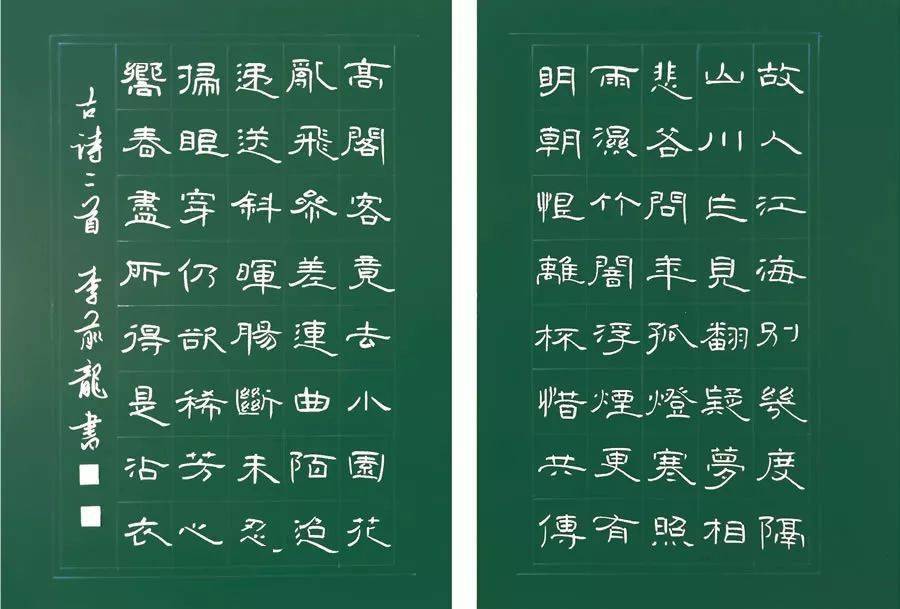 故人江海别幾度隔
山川乍見翻疑夢相
悲各問年孤燈寒照
雨濕竹闇浮煙更有
明朝恨離杯惜共傳
高閣客竟去小園花
亂飛參差連曲陌迢
遞送斜暉腸斷未忍
掃眼穿仍欲稀芳心
嚮春盡所得是沾衣
古诗二首 李龍書